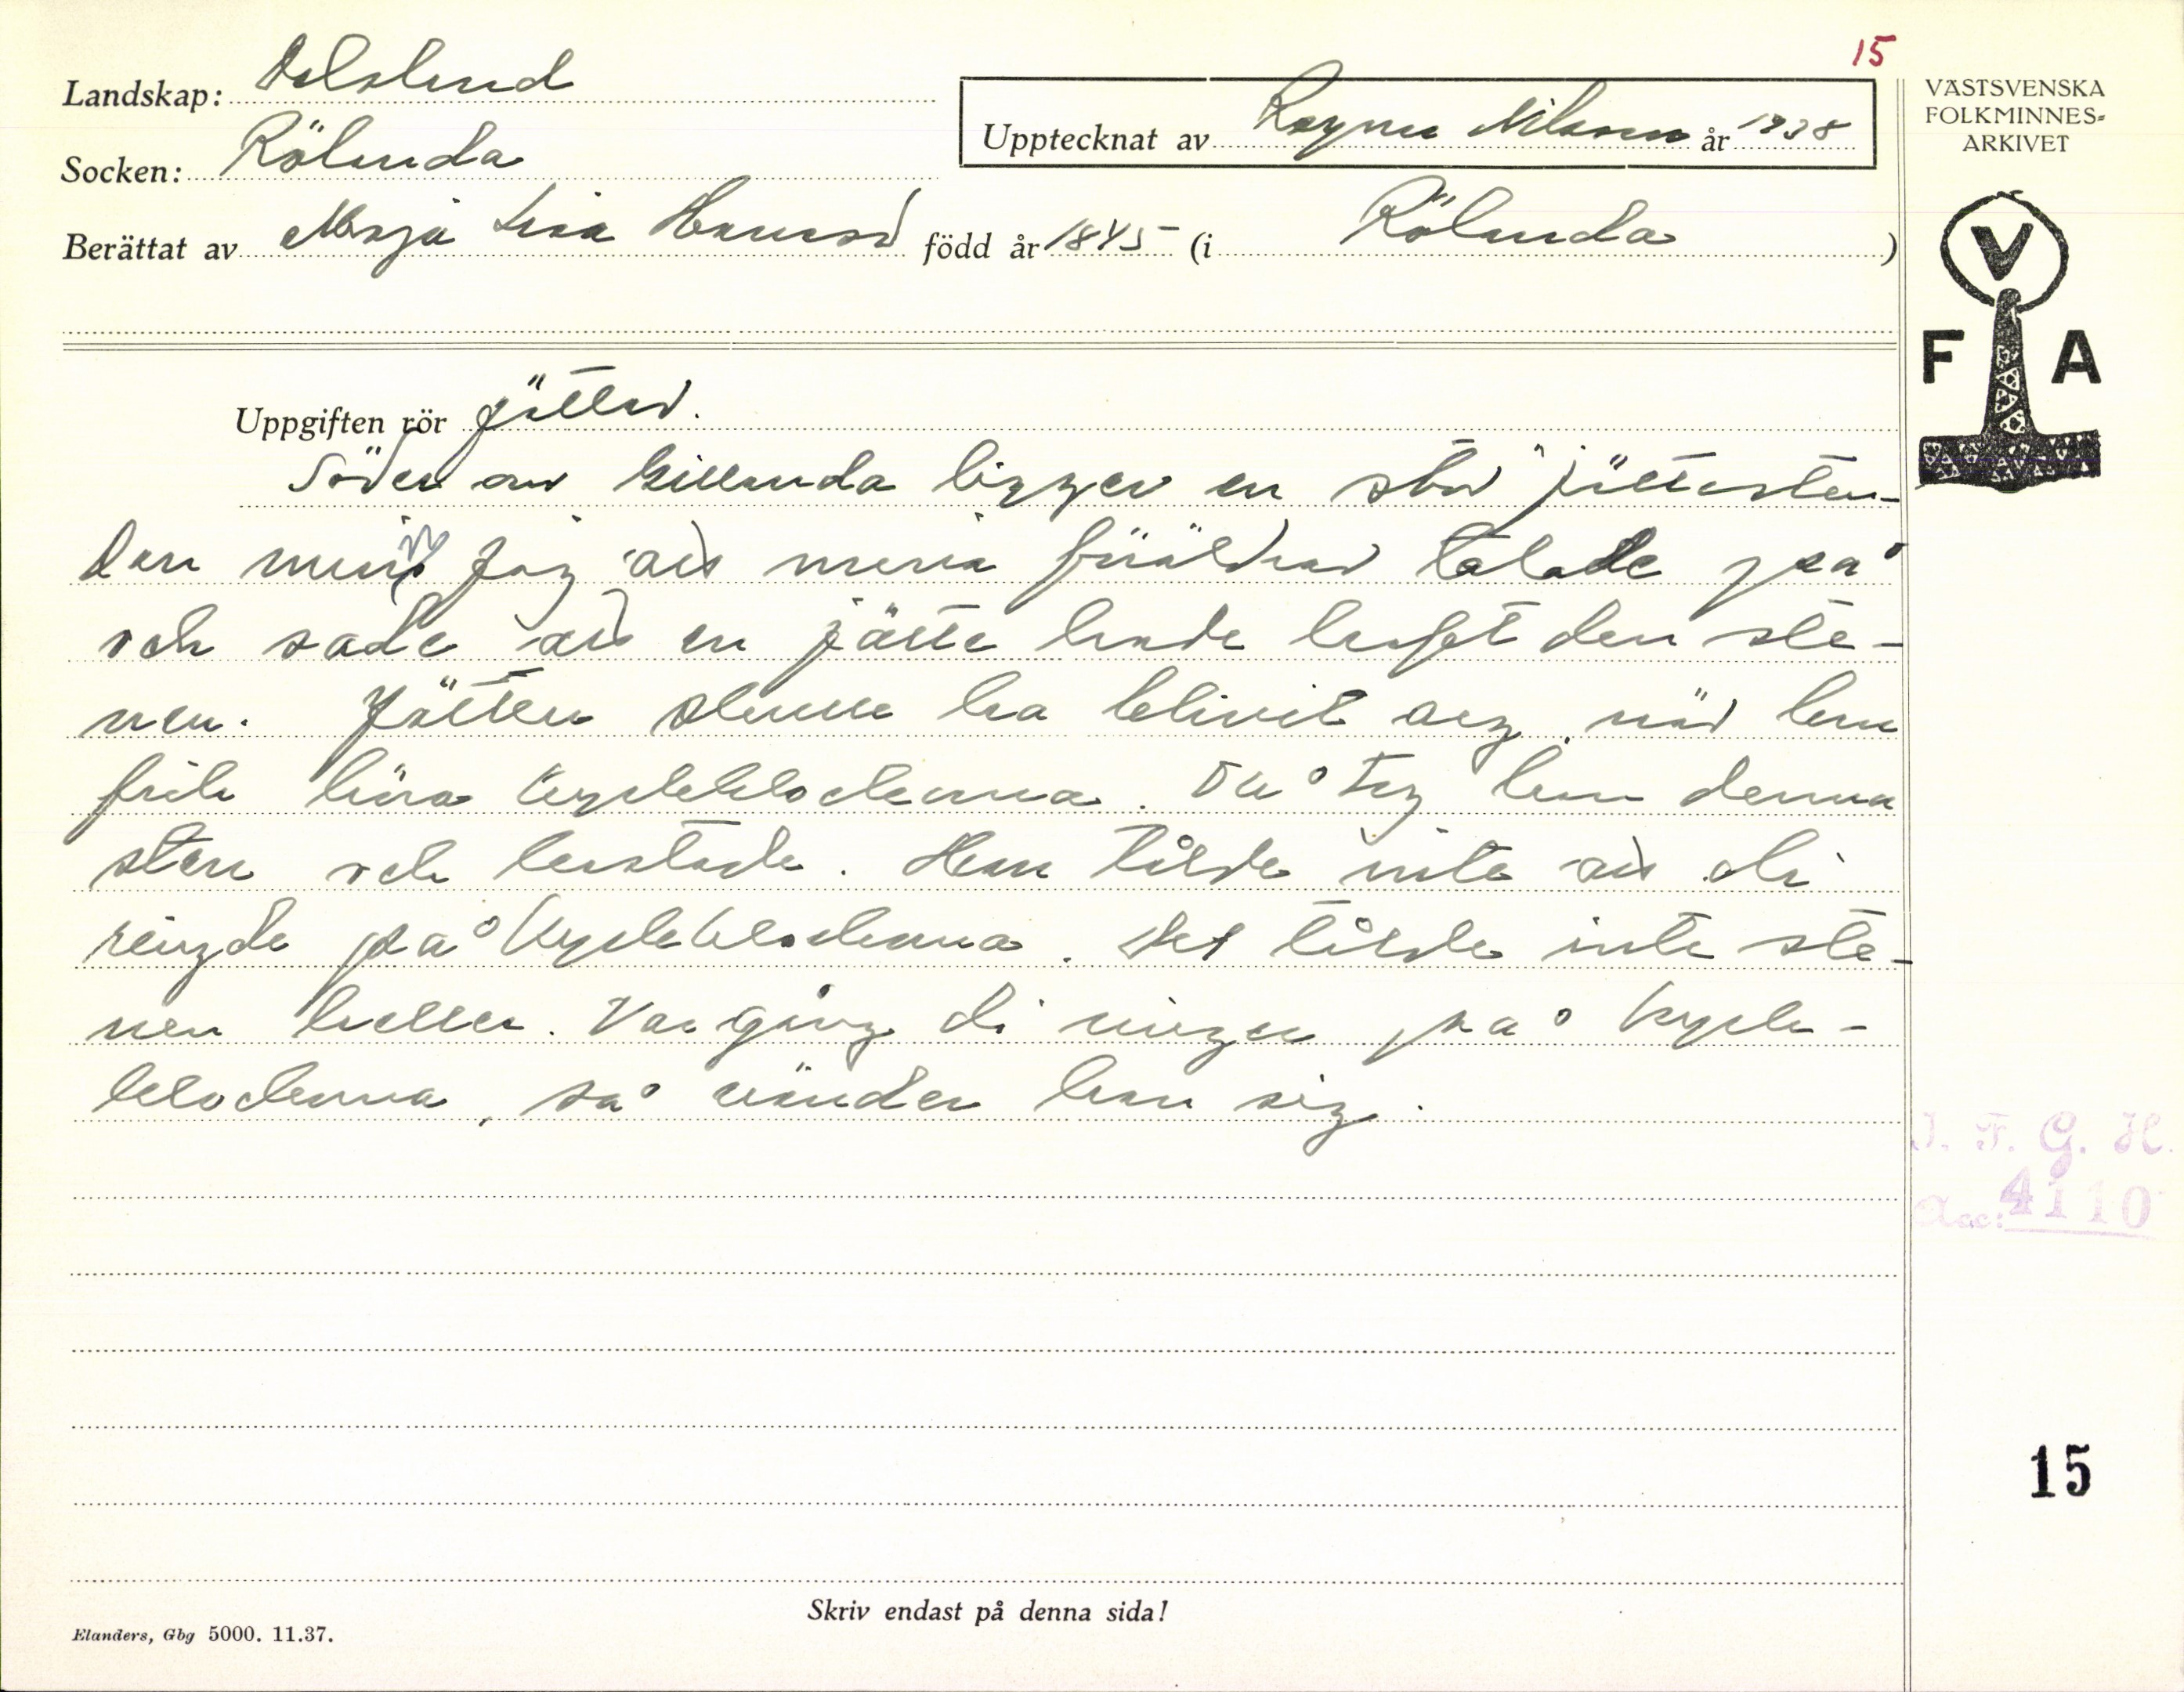 15
Landskap: Dalsland
Socken: Rölanda
Upptecknat av Ragnar Nilsson år 1938
Berättat av Maja Lisa Hansson född år 1845 (i Rölanda)
VÄSTSVENSKA
FOLKMINNES=
ARKIVET
V
F A
Uppgiften rör jättar.
Söder om ligger en stor jättesten
Den minns jag att mina föräldrar talade på
och sade att en jätte hade kastat den ste-
nen. Jätten skulle ha blivit arg, när han
fick höra kyrkklockorna. Då tog han denna
sten och kastade. Han tålde inte att di
ringde på kyrkklockorna. Det tålde inte ste-
nen heller. Var gång di ringer på kyrk-
klockorna, så vänder han sig.
I. F. G. H.
Acc: 4110
15
Skriv endast på denna sida!
Elanders, Gbg 5000. 11.37.